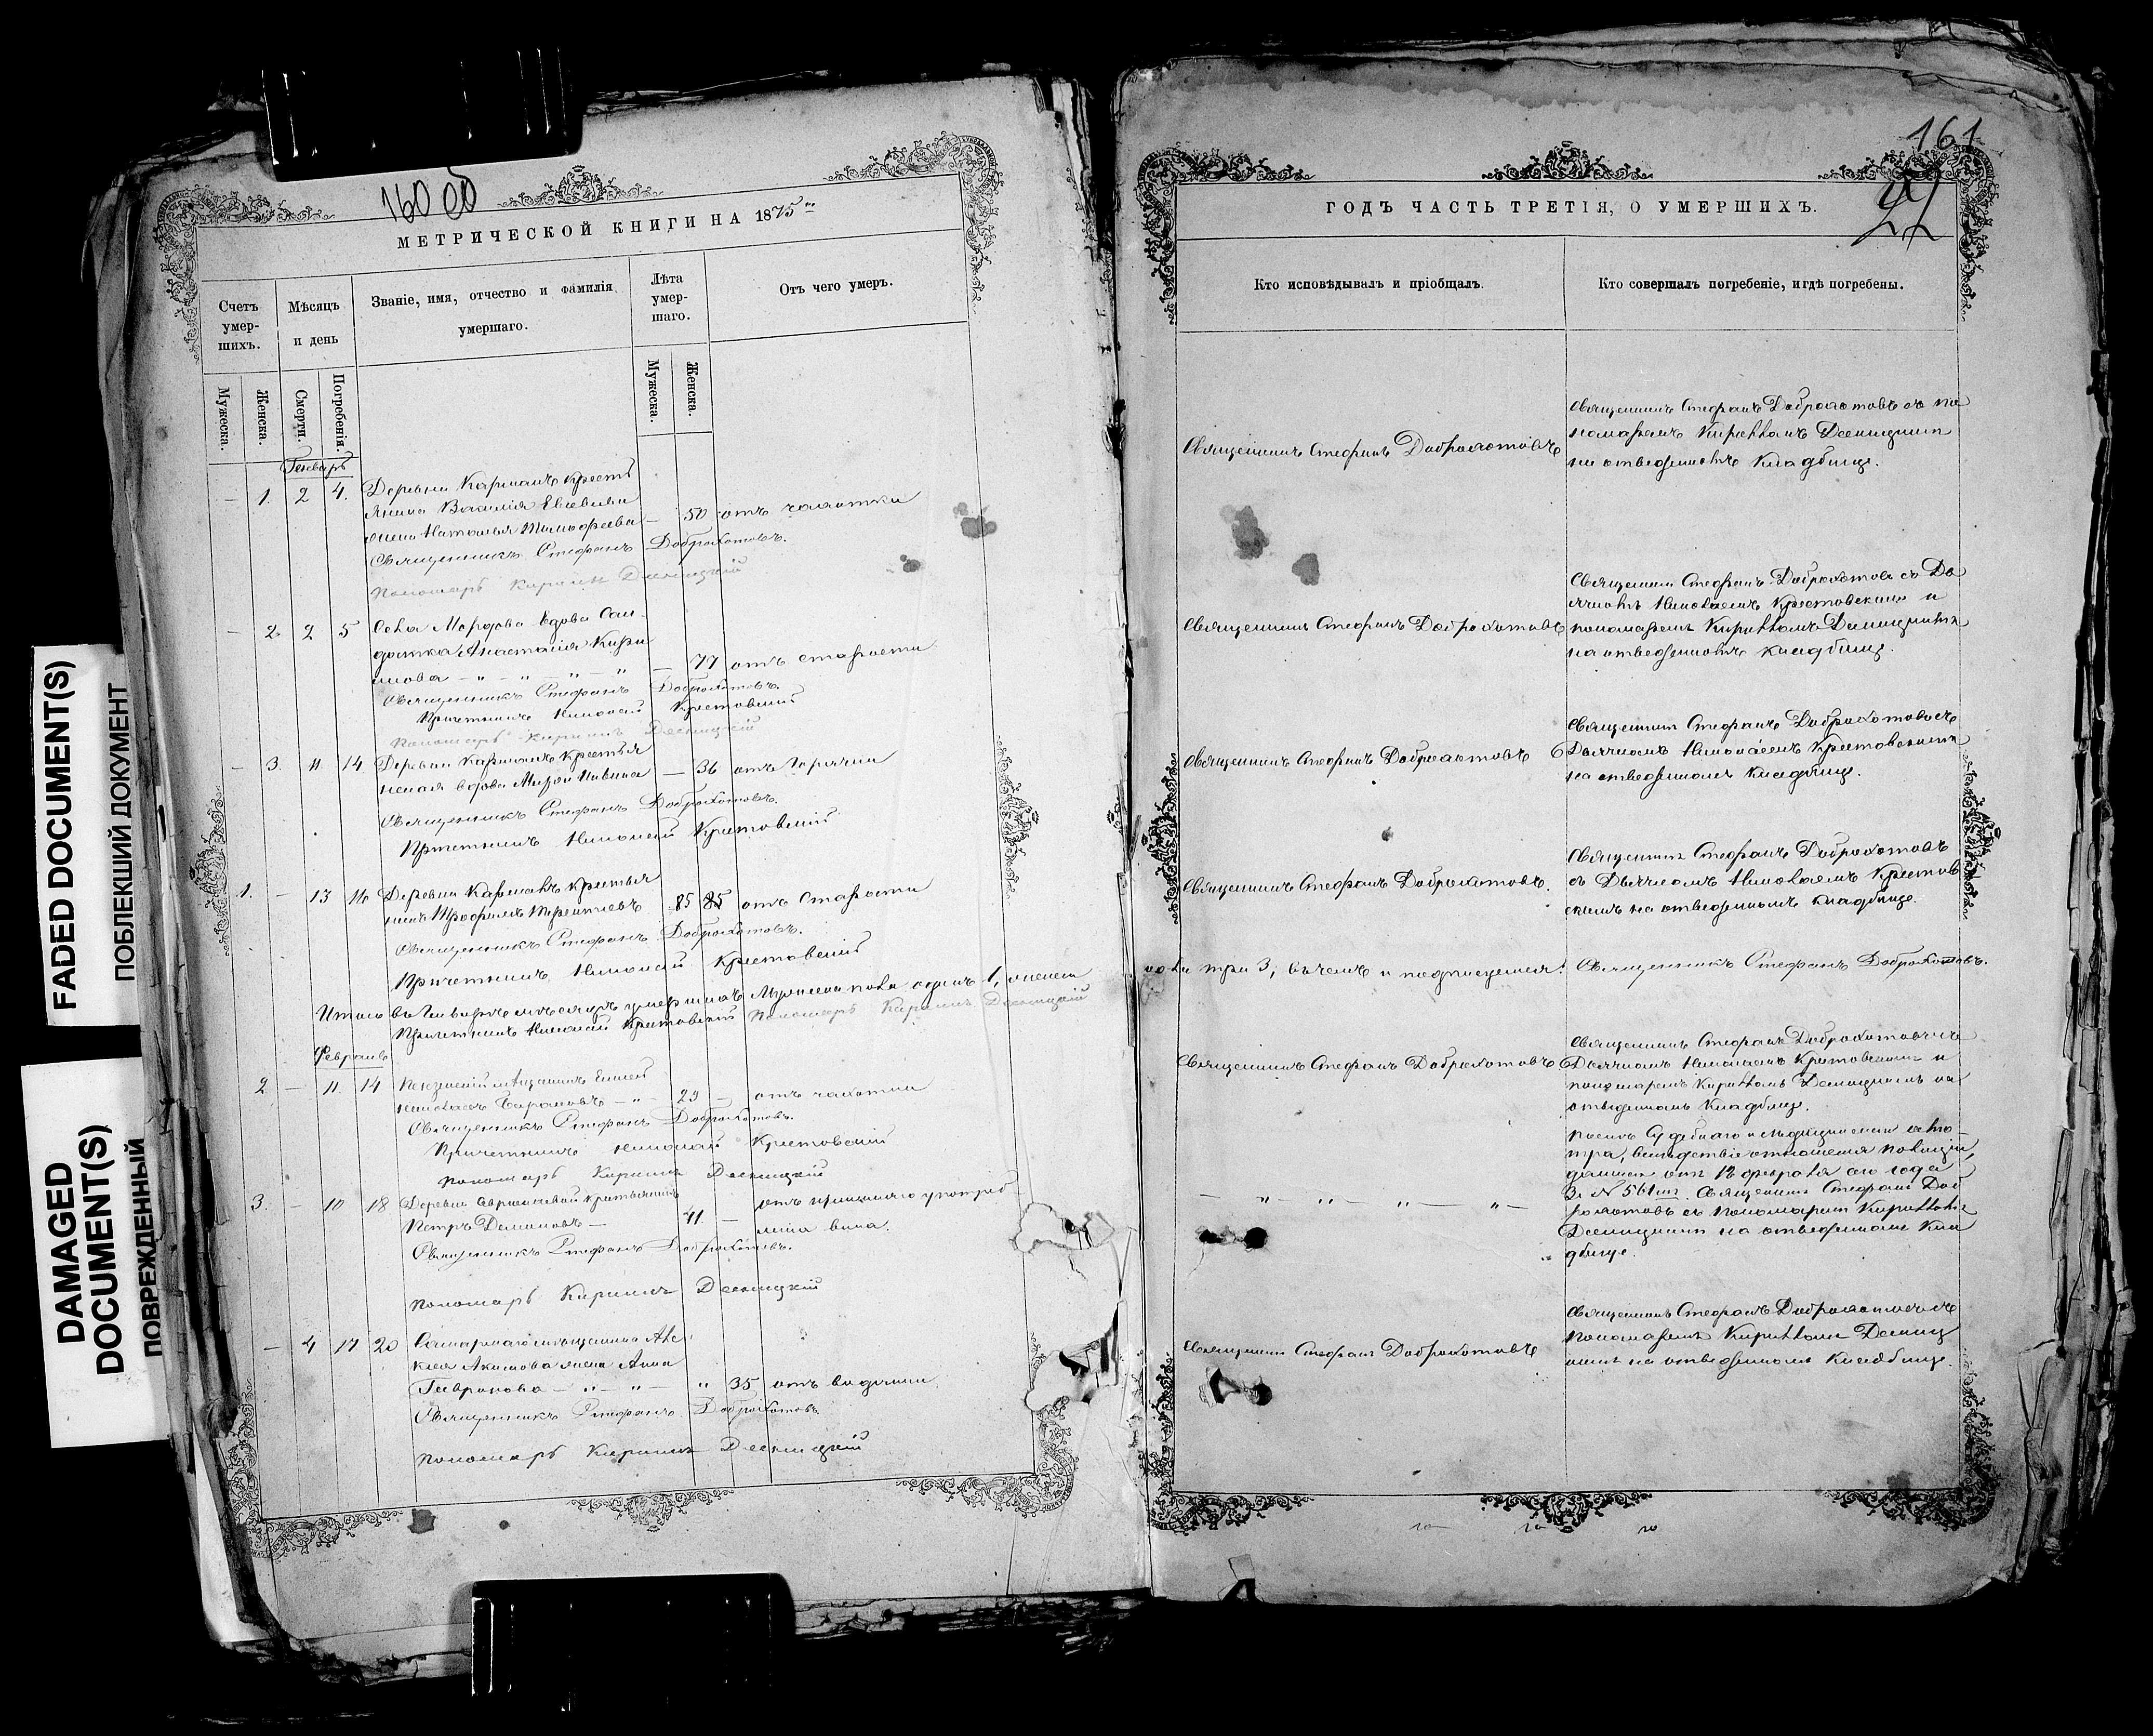 160 об
МЕТРИЧЕСКОЙ КНИГИ НА 1875
Счетъ умер-
шихъ.
Мѣсяцъ
и день
Званіе, имя, отчество и фамилія
умершаго.
Лѣта
умер-
шаго.
Отъ чего умеръ.
Мужеска.
Женска.
Смерти.
Погребенія.
Мужеска.
Женска.
Генварь
— 1. 2 4. Деревни крестья
янина Василія
жена Наталья Тимофеева — 50 отъ чахотки
Священникъ Стефанъ Доброхотовъ.
Пономарь Кирилъ Десницкій
— 2. 2 5 Села вдова Сол-
датка Анастасія Кири
лова — „ — „ — „ — „ — 77 отъ старости
Священникъ Стефанъ Доброхотовъ.
Причетникъ Николай Крестовскій
Пономарь Кирилъ Десницкій
— 3. 11. 14. Деревни Крестья
нская вдова — 36 отъ Горячки
Священникъ Стефанъ Доброхотовъ.
Причетникъ Николай Крестовскій
1. — 13 16 Деревни крестья
нинъ Трофимъ Терентьевъ 85 85 отъ Старости
Священникъ Стефанъ Доброхотовъ.
Причетникъ Николай Крестовскій
Итого въ Генварѣ мѣсяцѣ умершихъ Мужеска пола одинъ 1, женска
Причетникъ Николай Крестовскій Пономарь Кирилъ Десницкій
Февраль
2 — 11. 14 мѣщанинъ
Николаевъ — „ — 23 — отъ чахотки
Священникъ Стефанъ Доброхотовъ.
Причетникъ Николай Крестовскій
Пономарь Кирилъ Десницкій
3. — 10 18 Деревни крестьянинъ
Петръ — 41. — отъ излишняго употреб
ленія вина.
Священникъ Стефанъ Доброхотовъ.
Пономарь Кирилъ Десницкій
— 4 17 20 мѣщанина Але
ксея Акимова жена Анна
Гаврилова — „ — „ — „ 35 отъ водянки
Священникъ Стефанъ Доброхотовъ.
Пономарь Кирилъ Десницкій
161
ГОДЪ ЧАСТЬ ТРЕТІЯ, О УМЕРШИХЪ.
Кто исповѣдывалъ и пріобщалъ.
Кто совершалъ погребеніе, и гдѣ погребены.
Священникъ Стефанъ Доброхотовъ
Священникъ Стефанъ Доброхотовъ съ по
номаремъ Кирилломъ Десницкимъ
на отведенномъ кладбище.
Священникъ Стефанъ Доброхотовъ
Священникъ Стефанъ Доброхотовъ съ Дь
ячкомъ Николаемъ Крестовскимъ и
пономаремъ Кирилломъ Десницкимъ
на отведенномъ кладбище.
Священникъ Стефанъ Доброхотовъ
Священникъ Стефанъ Доброхотовъ съ
Дьячкомъ Николаемъ Крестовскимъ
на отведенномъ кладбище.
Священникъ Стефанъ Доброхотовъ.
Священникъ Стефанъ Доброхотовъ
съ Дьячкомъ Николаемъ Крестов
скимъ на отведенномъ кладбище.
пола три 3, въ чемъ и подписуемся: Священникъ Стефанъ Доброхотовъ.
Священникъ Стефанъ Доброхотовъ
Священникъ Стефанъ Доброхотовъ съ
Дьячкомъ Николаемъ Крестовскимъ и
пономаремъ Кирилломъ Десницкимъ на
отведенномъ кладбище.
послѣ Судебнаго медицинскаго осмо-
тра, вслѣдствіе отношенія полиціи,
даннаго отъ 12 февраля сего года
За № 561 Священникъ Стефанъ Доб
рохотовъ съ Пономаремъ Кирилломъ
Десницкимъ на отведенномъ кла
дбище.
Священникъ Стефанъ Доброхотовъ
Священникъ Стефанъ Доброхотовъ съ
Пономаремъ Кирилломъ Десниц
кимъ на отведенномъ кладбище.
FADED DOCUMENT(S)
ПОБЛЕКШИЙ ДОКУМЕНТ
DAMAGED
DOCUMENT(S)
ПОВРЕЖДЕННЫЙ